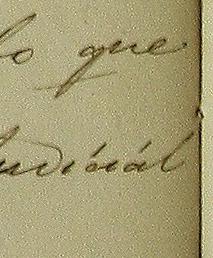 lo que
judiciál